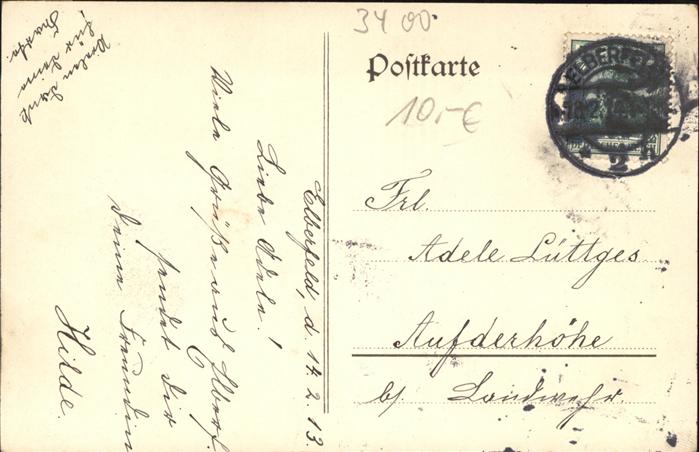 Elberfeld, d. 14.2.13.
Liebe Adele!
Viele Grüße aus Elberf.
sendet Dir
Deine Freundin
Hilde.
Vielen Dank
für deine
Karte.
3400
Postkarte
10,-€
ELBERFELD
2
Frl.
Adele Lüttges
Aufderhöhe
b/ Landwehr.